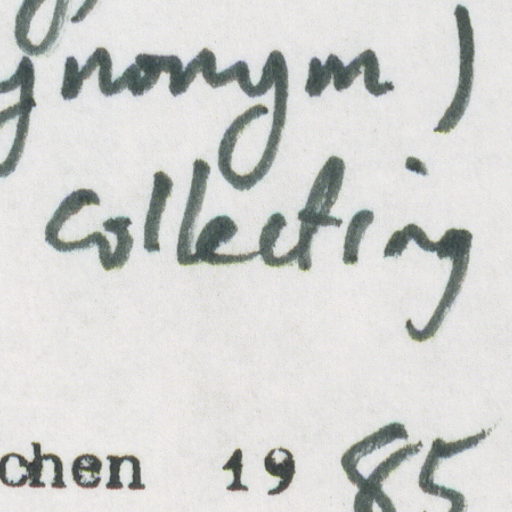 ynonym)
collecting
chen 1985